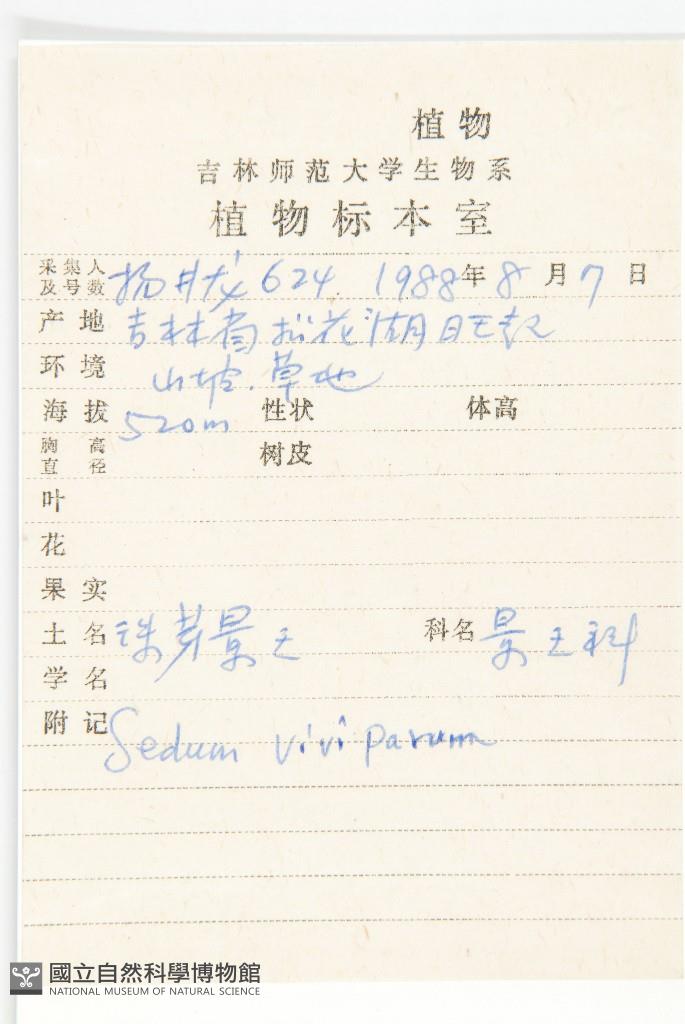 植物
吉林师范大学生物系
植物标本室
采集人及号数 杨井 624 1988年8月7日
产地 吉林省松花湖旺起
环境 山坡.草地
海拔 520m 性状 体高
胸高直径 树皮
叶
花
果实
土名 珠芽景天 科名 景天科
学名
附记 Sedum viviparum
國立自然科學博物館
NATIONAL MUSEUM OF NATURAL SCIENCE